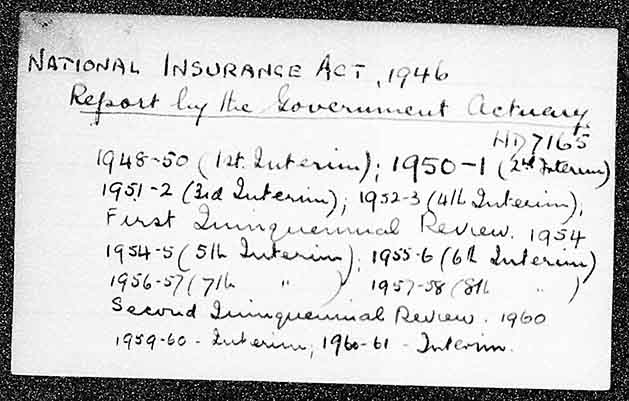 NATIONAL INSURANCE ACT, 1946
Report by the Government Actuary.
HD7165
1948-50 (1st. Interim); 1950-1 (2nd Interim)
1951-2 (3rd Interim); 1952-3 (4th Interim);
First Quinquennial Review. 1954
1954-5 (5th Interim); 1955-6 (6th Interim)
1956-57 (7th " ) 1957-58 (8th " )
Second Quinquennial Review. 1960
1959-60 - Interim; 1960-61 - Interim.